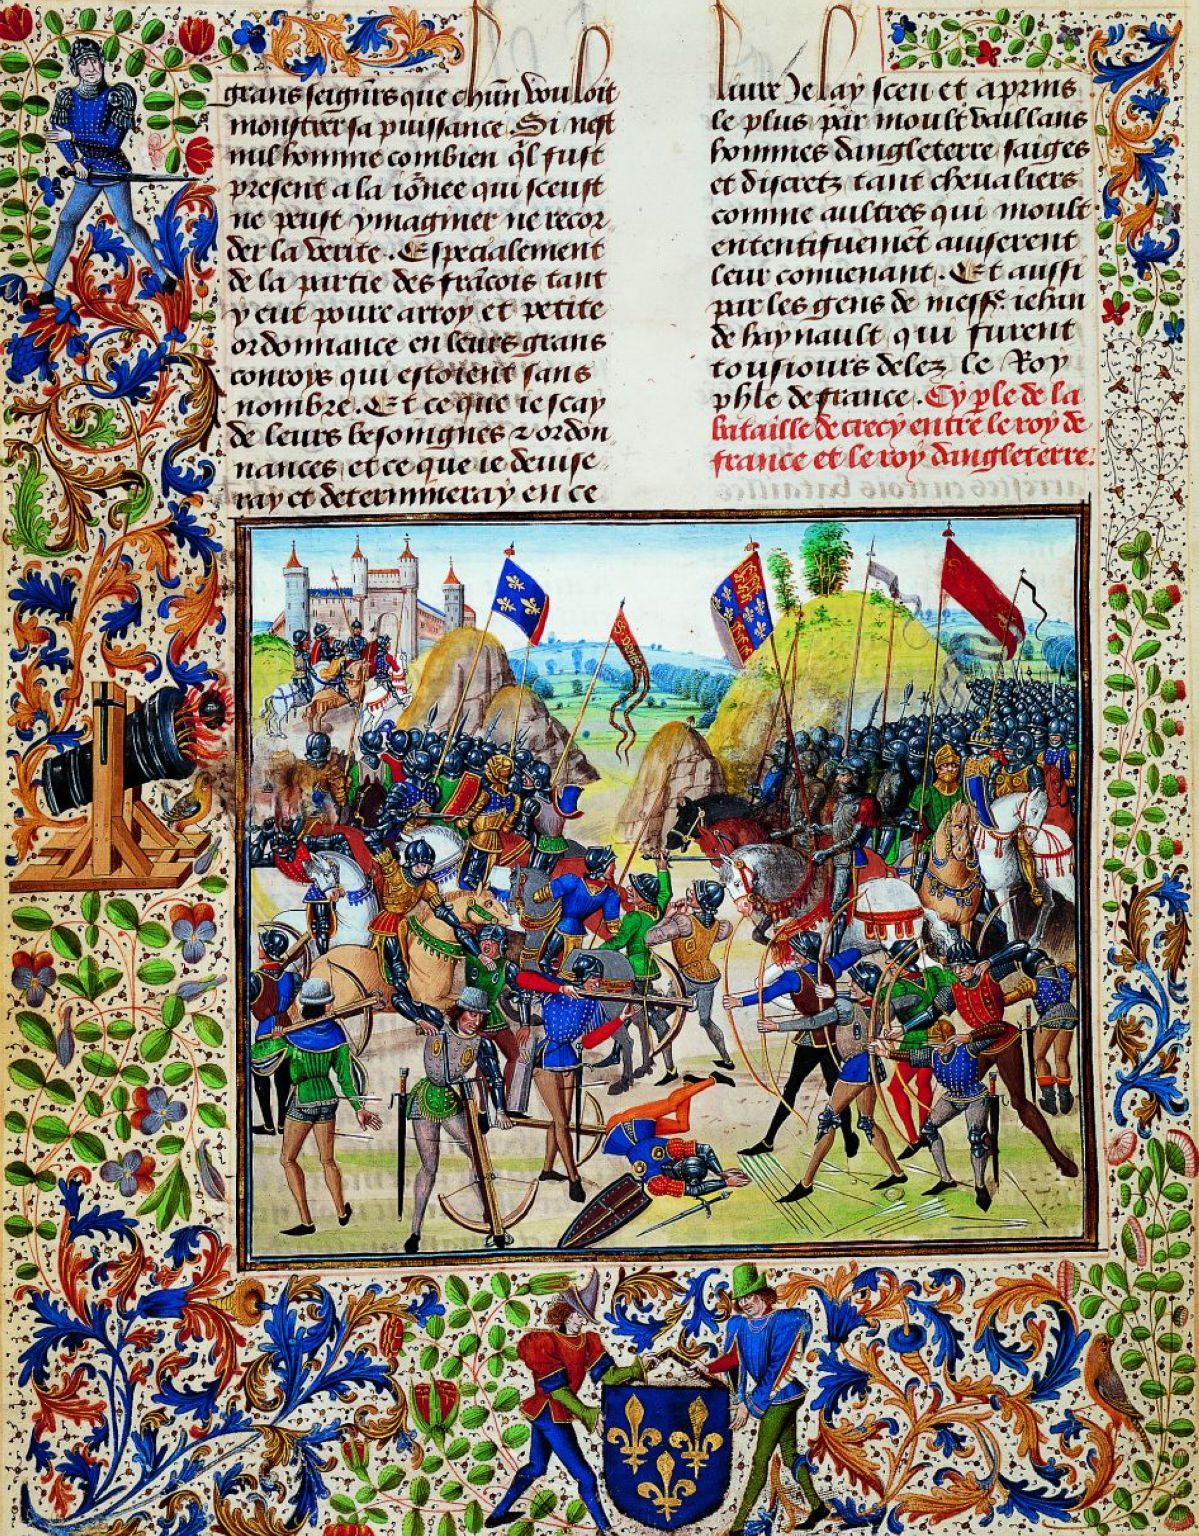 grans seigneurs que chun vouloit
monstrer sa puissance. Si nest
nul homme combien ql fust
present a la iônee qui sceust
ne peust ymaginer ne recor
der la verite. Especialement
de la partie des frãcois tant
y eut poure arroy et petite
ordonnance en leurs grans
conroys qui estoient sans
nombre. Et ce que ie scay
de leurs besoingnes et ordon
nances et ce que ie deuise
ray et determineray en ce
liure Je lay sceu et aprins
le plus par moult vaillans
hommes dangleterre saiges
et discretz tant cheualiers
comme aultres qui moult
ententifuemẽt auiserent
leur conuenant. Et aussi
par les gens de messe. iehan
de haynault qui furent
tousiours delez le Roy
phle de france. Cy ple de la
bataille de crecy entre le roy de
france et le roy dangleterre.